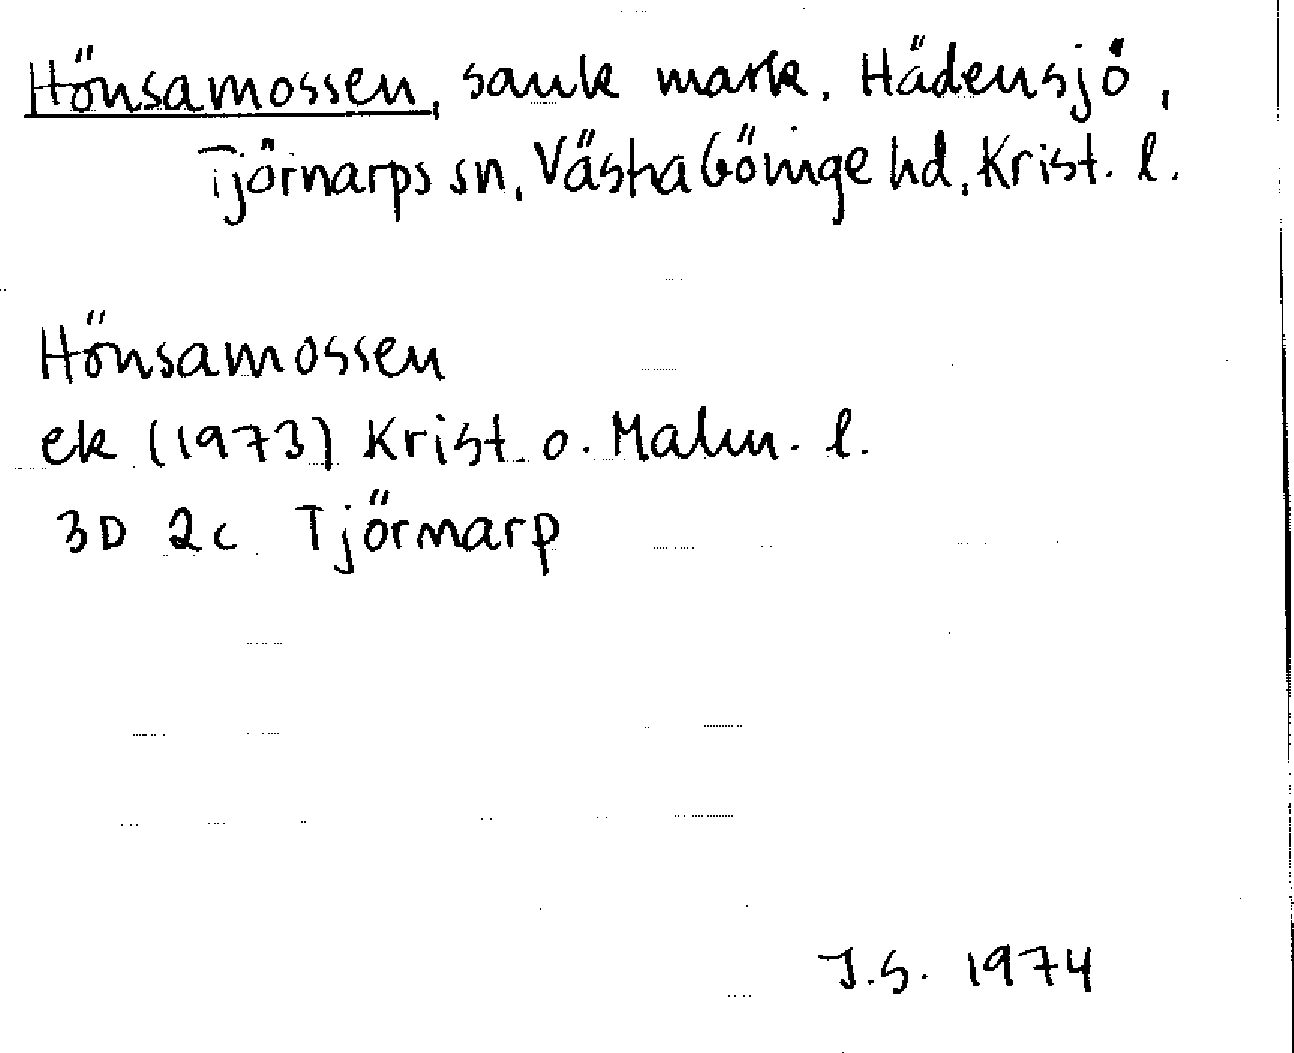 Hönsamossen, sank mark. Hädensjö,
Tjörnarps sn, Västra Göinge hd, Krist. l.
Hönsamossen
ek (1973) Krist. o. Malm. l.
3D 2c Tjörnarp
J.S. 1974